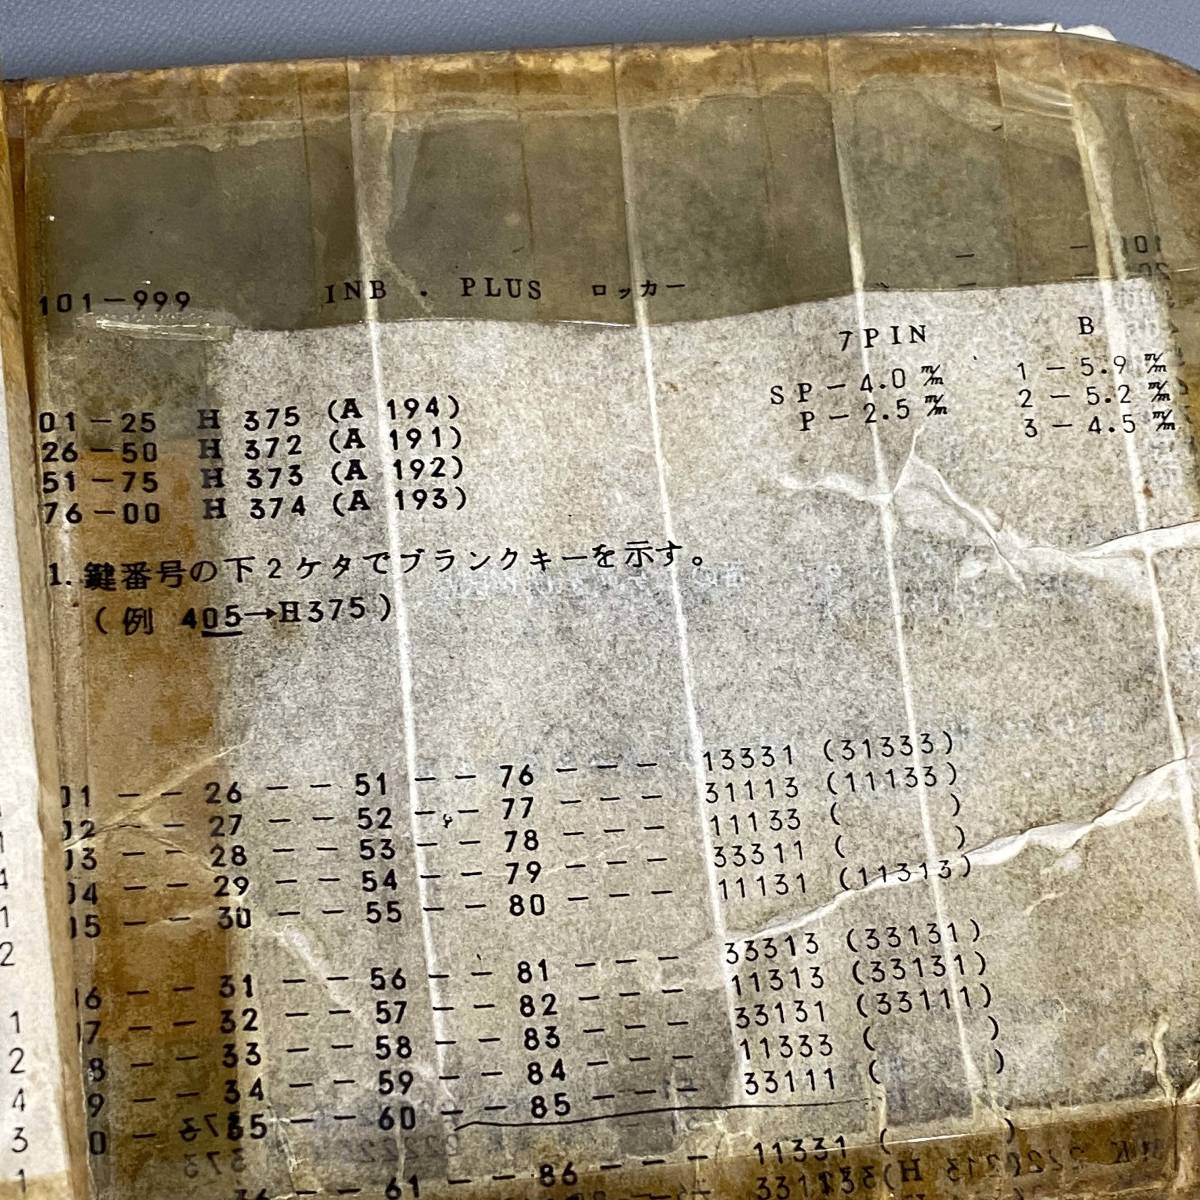 101-999 INB . PLUS ロッカー
7PIN B
SP-4.0 m/m 1-5.9 m/m
P-2.5 m/m 2-5.2 m/m
3-4.5 m/m
01-25 H 375 (A 194)
26-50 H 372 (A 191)
51-75 H 373 (A 192)
76-00 H 374 (A 193)
1. 鍵番号の下2ケタでブランクキーを示す。
(例 405→H375)
01 -- 26 -- 51 -- 76 --- 13331 (31333)
02 -- 27 -- 52 -- 77 --- 31113 (11133)
03 -- 28 -- 53 -- 78 --- 11133 ( )
04 -- 29 -- 54 -- 79 --- 33311 ( )
05 -- 30 -- 55 -- 80 --- 11131 (11313)
6 -- 31 -- 56 -- 81 --- 33313 (33131)
7 -- 32 -- 57 -- 82 --- 11313 (33131)
8 -- 33 -- 58 -- 83 --- 33131 (33111)
9 -- 34 -- 59 -- 84 --- 11333 ( )
0 -- 35 -- 60 -- 85 --- 33111 ( )
61 -- 86 --- 11331 ( )